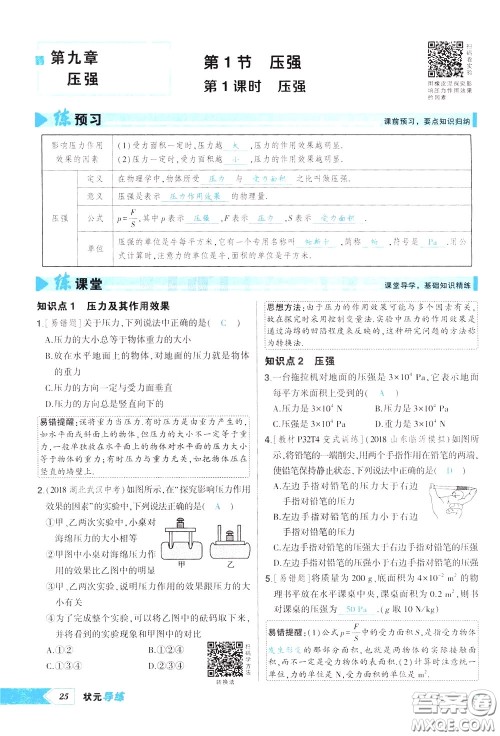 第九章
压强
第1节 压强
第1课时 压强
扫码看实验
用橡皮泥探究影响压力作用效果的因素
练 预习
课前预习，要点知识归纳
影响压力作用效果的因素
(1)受力面积一定时，压力越 大 ，压力的作用效果越明显.
(2)压力一定时，受力面积越 小 ，压力的作用效果越明显.
压强
定义
在物理学中，物体所受 压力 与 受力面积 之比叫做压强.
意义
压强是表示 压力作用效果 的物理量.
公式
p=F/S，其中p表示 压强 ，F表示 压力 ，S表示 受力面积 .
单位
压强的单位是牛每平方米，它有一个专用名称叫 帕斯卡 ，简称 帕 ，符号是 Pa ，用公
式计算时，注意力的单位是牛，受力面积的单位是平方米.
练 课堂
课堂导学，基础知识精练
知识点1 压力及其作用效果
1.[易错题]关于压力，下列说法中正确的是( C )
A.压力的大小总等于物体重力的大小
B.放在水平地面上的物体，压力就是物体的重力
C.压力的方向一定与受力面垂直
D.压力的方向总是竖直向下
易错提醒：误将重力当压力，有时压力是由重力产生的，
如水平面或斜面上的物体，但压力的大小不一定等于重
力，一般单独放在水平面上的物体，压力大小等于
物体的重力；有时压力与重力无关，如物体压在
竖直的墙壁上.
2.(2018湖北武汉中考)如图所示，在“探究影响压力作用
效果的因素”的实验中，下列说法正确的是( )
①甲、乙两次实验中，小桌对
海绵压力的大小相等
②甲图中小桌对海绵压力的作
用效果比乙图中的明显
甲
乙
③甲、乙两次实验，说明压力的作用效果跟压力的大
小有关
④为了完成整个实验，可以将乙图中的砝码取下，
并将看到的实验现象和甲图中对比
A.①②
B.①③
C.①③④
D.②③④
扫码学方法
转换法
思想方法：由于压力的作用效果与多个因素有关，
故在探究时采用控制变量法.实验中压力的作用效果是
通过海绵的凹陷程度来反映的，这种研究问题的方法称
为转换法.
知识点2 压强
3.一台拖拉机对地面的压强是3×10⁴ Pa，它表示地面
每平方米面积上受到的( A )
A.压力是3×10⁴ N
B.重力是3×10⁴ N
C.压强是3×10⁴ N
D.质量是3×10⁴ N
4.[教材P32T4变式训练](2018山东临沂模拟)如图所
示，将铅笔的一端削尖，用两个手指对顶在铅笔的两端，
使铅笔保持静止状态，下列说法中正确的是( D )
A.左边手指对铅笔的压力大于右边
手指对铅笔的压力
B.左边手指对铅笔的压力小于右边
手指对铅笔的压力
C.左边手指对铅笔的压强大于右边手指对铅笔的压强
D.左边手指对铅笔的压强小于右边手指对铅笔的压强
5.[易错题]将质量为200 g，底面积为4×10⁻² m²的物
理书平放在水平课桌中央，课桌面积为0.2 m²，则书
对课桌的压强为 50 Pa .(g取10 N/kg)
易错提醒：(1)公式p=F/S中的受力面积S，是指受力物体
发生形变的那部分面积，也就是两个物体的实际接触
面积，而不一定是某物体的表面积.(2)计算时注意统一单
位，力的单位是N，受力面积的单位是m².
25
状元导练